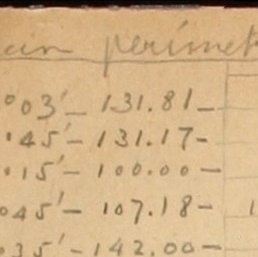 perimet
°03'_ 131.81_
°45'_ 131.17-
°15'_ 100.00-
°45'_ 107.18-
°35'-142.00-